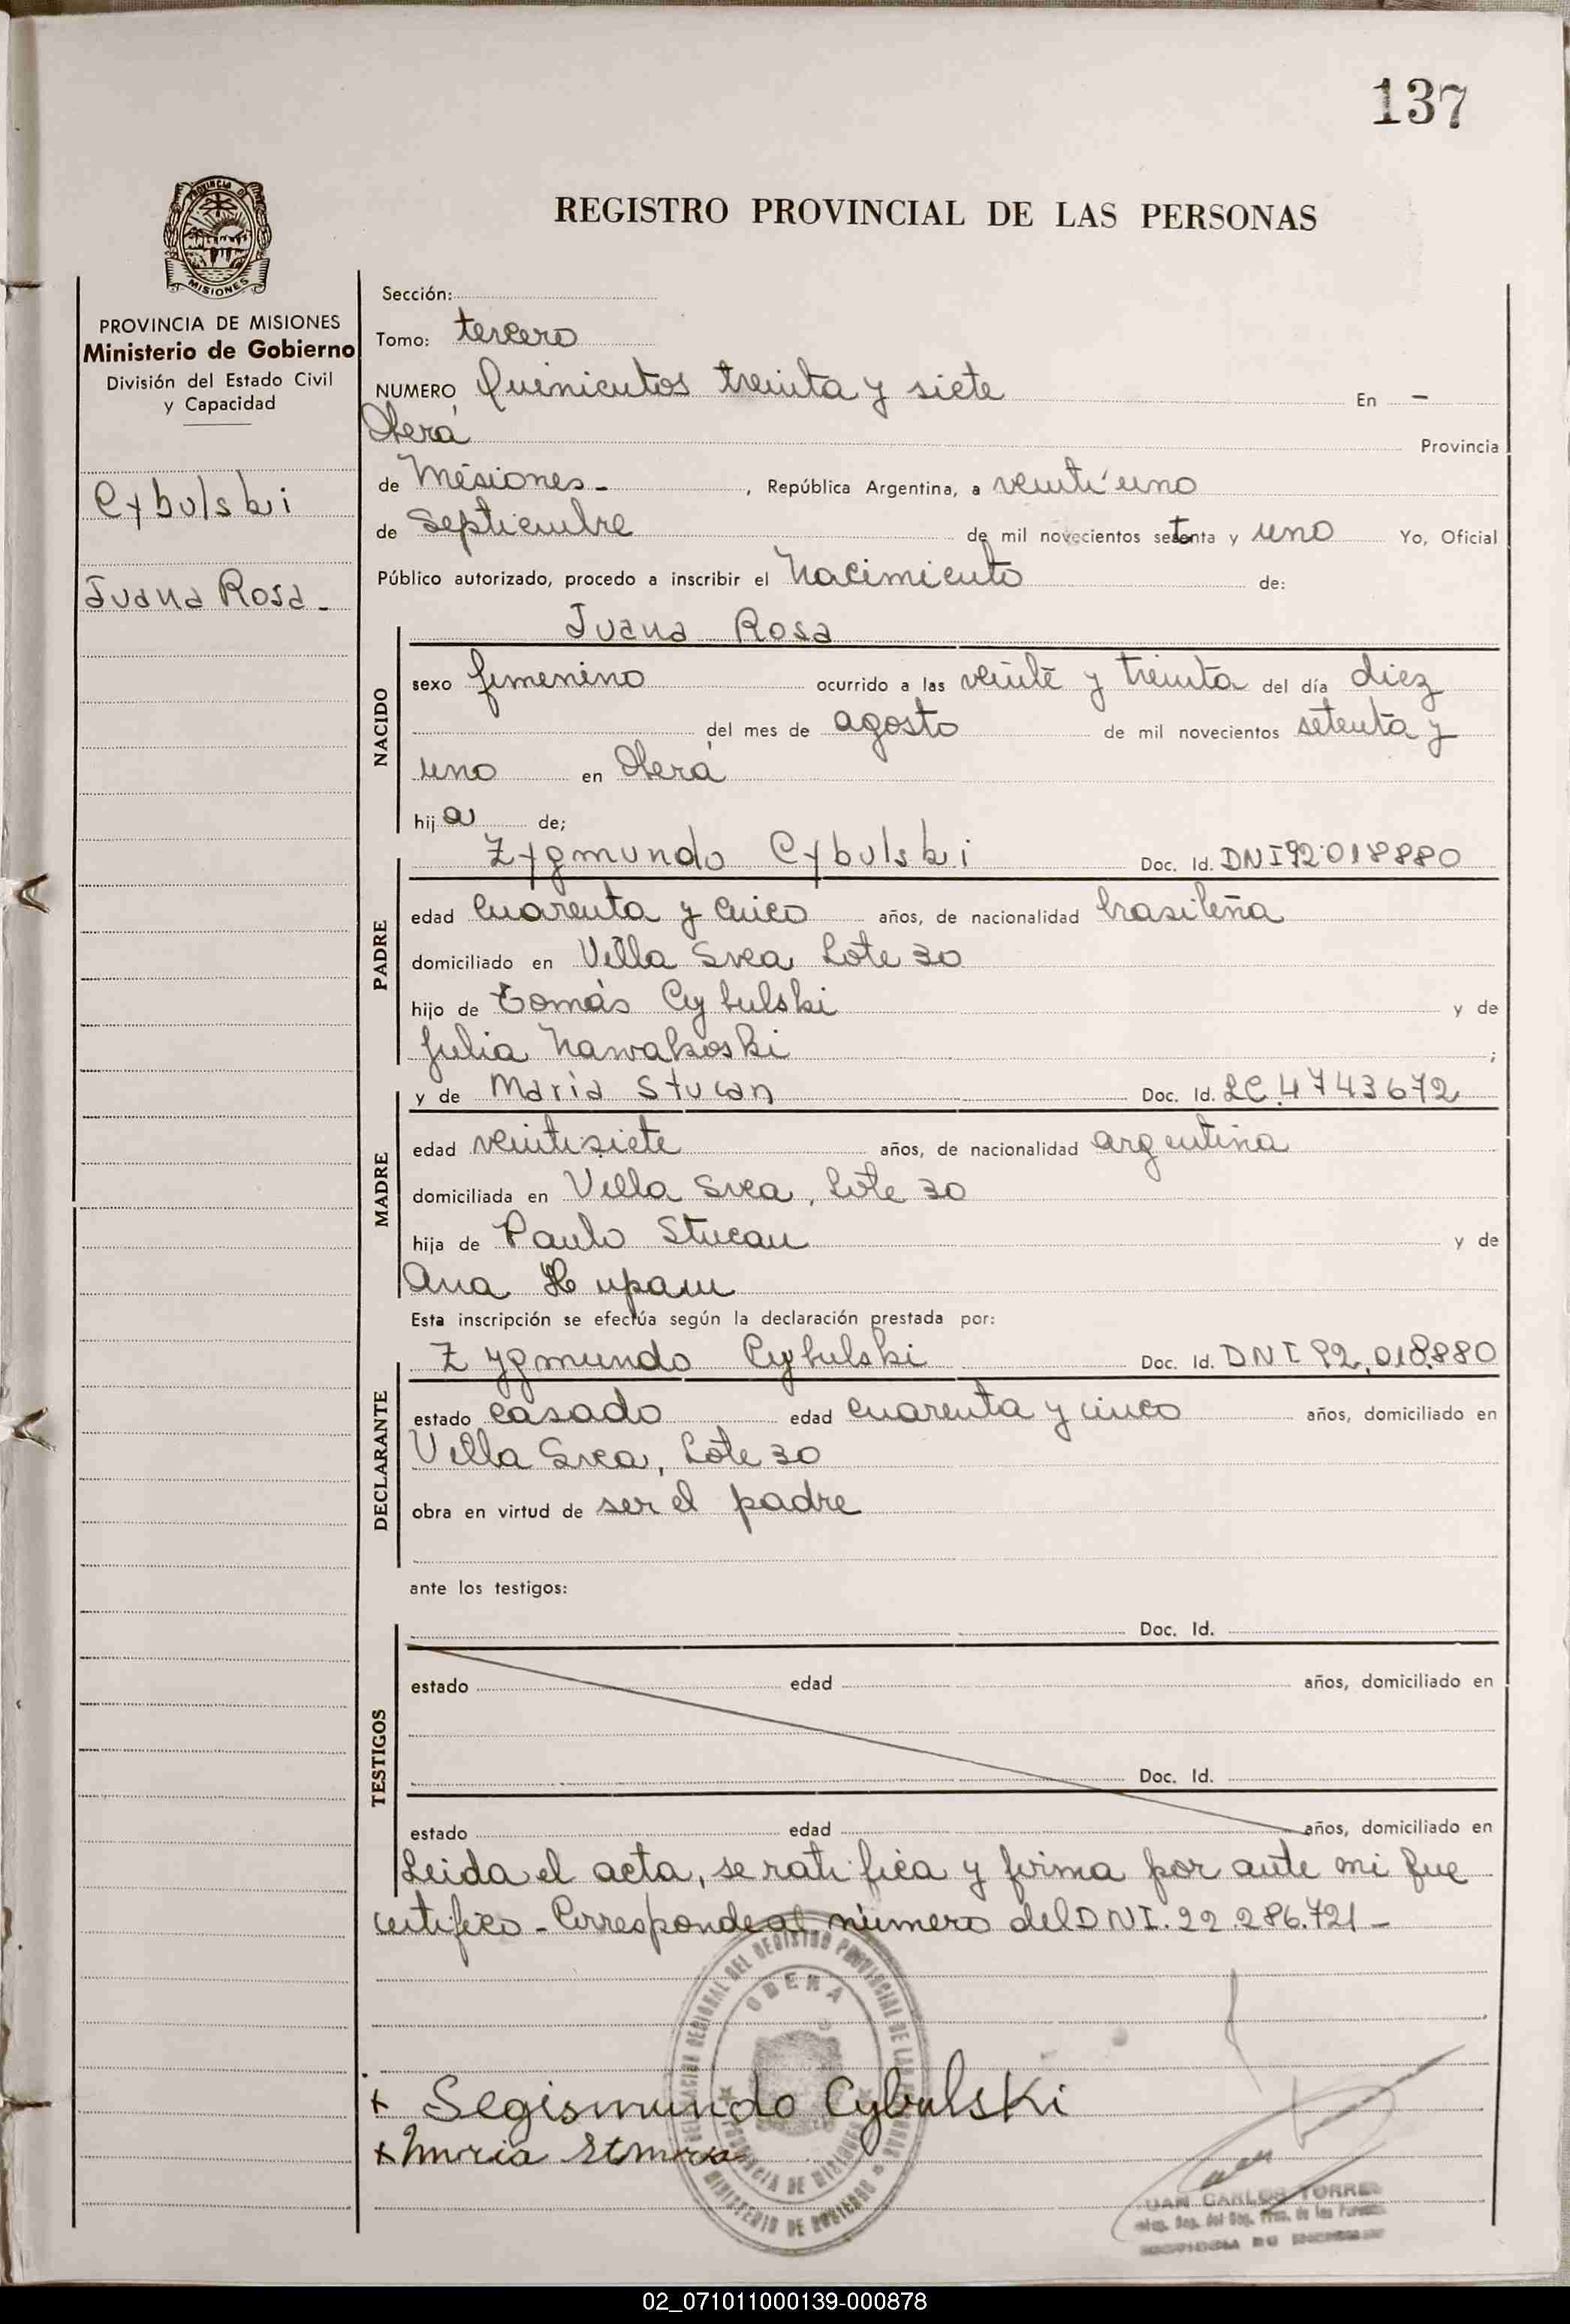 137
PROVINCIA DE
MISIONES
PROVINCIA DE MISIONES
Ministerio de Gobierno
División del Estado Civil
y Capacidad
Cybulski
Juana Rosa -
REGISTRO PROVINCIAL DE LAS PERSONAS
Sección:
Tomo: tercero
NUMERO, Quinientos treinta y siete En -
Oberá Provincia
de Misiones - , República Argentina, a veintiuno
de Septiembre de mil novecientos setenta y uno Yo, Oficial
Público autorizado, procedo a inscribir el Nacimiento de:
Juana Rosa
NACIDO
sexo femenino ocurrido a las veinte y treinta del día diez
del mes de agosto de mil novecientos setenta y
uno en Oberá
hija de;
Zygmundo Cybulski Doc. Id. DNI 92.018880
PADRE
edad Cuarenta y cinco años, de nacionalidad brasileña
domiciliado en Villa Svea Lote 30
hijo de Tomás Cybulski y de
Julia Nawakoski ;
y de Maria Stucan Doc. Id. LC.4743672
MADRE
edad veintisiete años, de nacionalidad argentina
domiciliada en Villa Svea, Lote 30
hija de Paulo Stucan y de
Ana
Esta inscripción se efectúa según la declaración prestada por:
Zygmundo Cybulski Doc. Id. DNI 92.018.880
DECLARANTE
estado casado edad cuarenta y cinco años, domiciliado en
Villa Svea, Lote 30
obra en virtud de ser el padre
ante los testigos:
Doc. Id.
TESTIGOS
estado edad años, domiciliado en
Doc. Id.
estado edad años, domiciliado en
Leida el acta, se ratifica y firma por ante mi que
certifico - Corresponde al número del DNI. 22.286.721 -
OBERA
PROVINCIA DE MISIONES
MINISTERIO DE GOBIERNO
x Segismundo Cybulski
x Maria
JUAN CARLOS TORRES
02_071011000139-000878